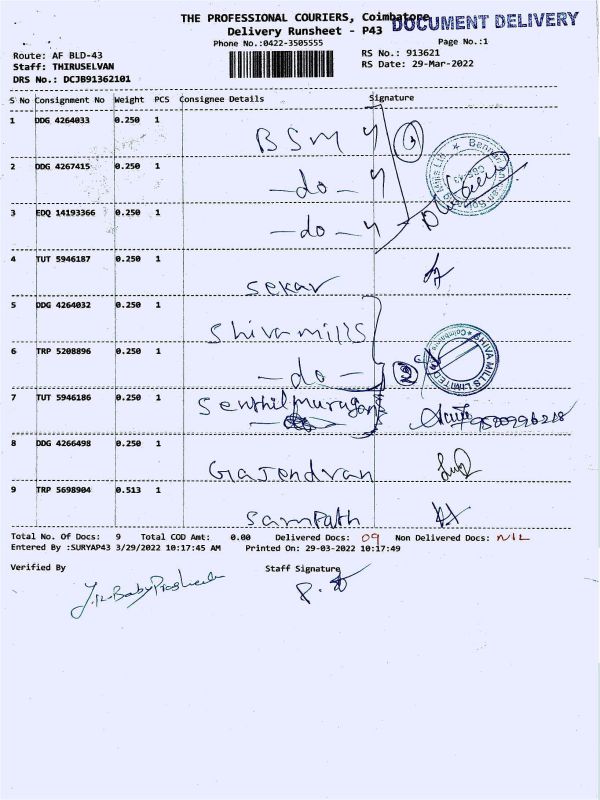 THE PROFESSIONAL COURIERS, Coimbatore
DOCUMENT DELIVERY
Delivery Runsheet - P43
Phone No.:0422-3505555
Page No.:1
Route: AF BLD-43
RS No.: 913621
Staff: THIRUSELVAN
RS Date: 29-Mar-2022
DRS No.: DCJB91362101
S No Consignment No Weight PCS Consignee Details Signature
1 DDG 4264033 0.250 1
BSM
2 DDG 4267415 0.250 1
-do-
3 EDQ 14193366 0.250 1
-do-
4 TUT 5946187 0.250 1
Sekar
5 DDG 4264032 0.250 1
Shiva mills
6 TRP 5208896 0.250 1
-do-
SHIVA MILLS LIMITED
Coimbatore
7 TUT 5946186 0.250 1
Senthil murugan
8 DDG 4266498 0.250 1
Gajendran
9 TRP 5698904 0.513 1
Sampath
Total No. Of Docs: 9 Total COD Amt: 0.00 Delivered Docs: 09 Non Delivered Docs: NIL
Entered By :SURYAP43 3/29/2022 10:17:45 AM Printed On: 29-03-2022 10:17:49
Verified By Staff Signature